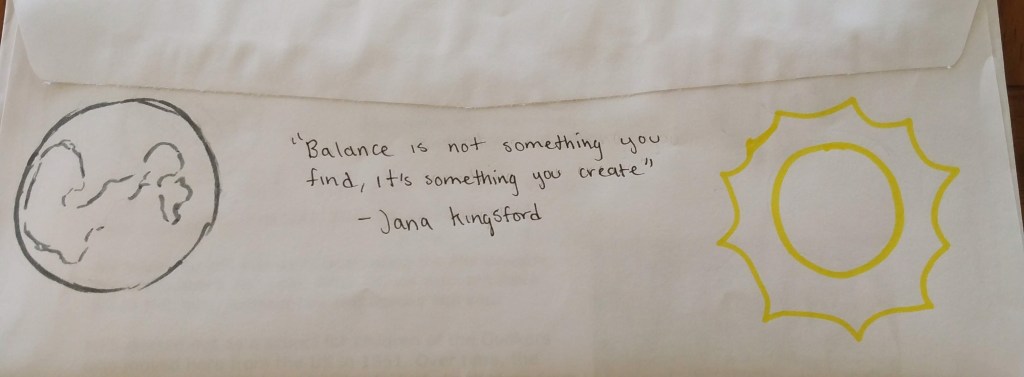 "Balance is not something you
find, it's something you create"
-Jana Kingsford